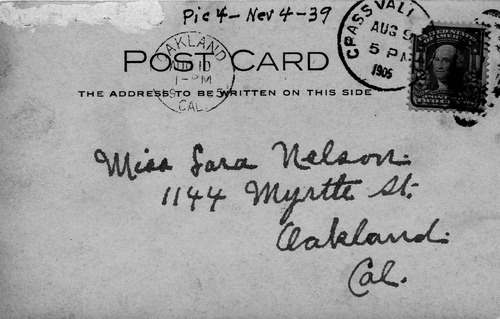 Pic 4 - Nev 4-39
GRASS VALL
AUG 9
5 PM
1905
OAKLAND
1-PM
CAL
POST CARD
THE ADDRESS TO BE WRITTEN ON THIS SIDE
Miss Sara Nelson.
1144 Myrtle St.
Oakland.
Cal.